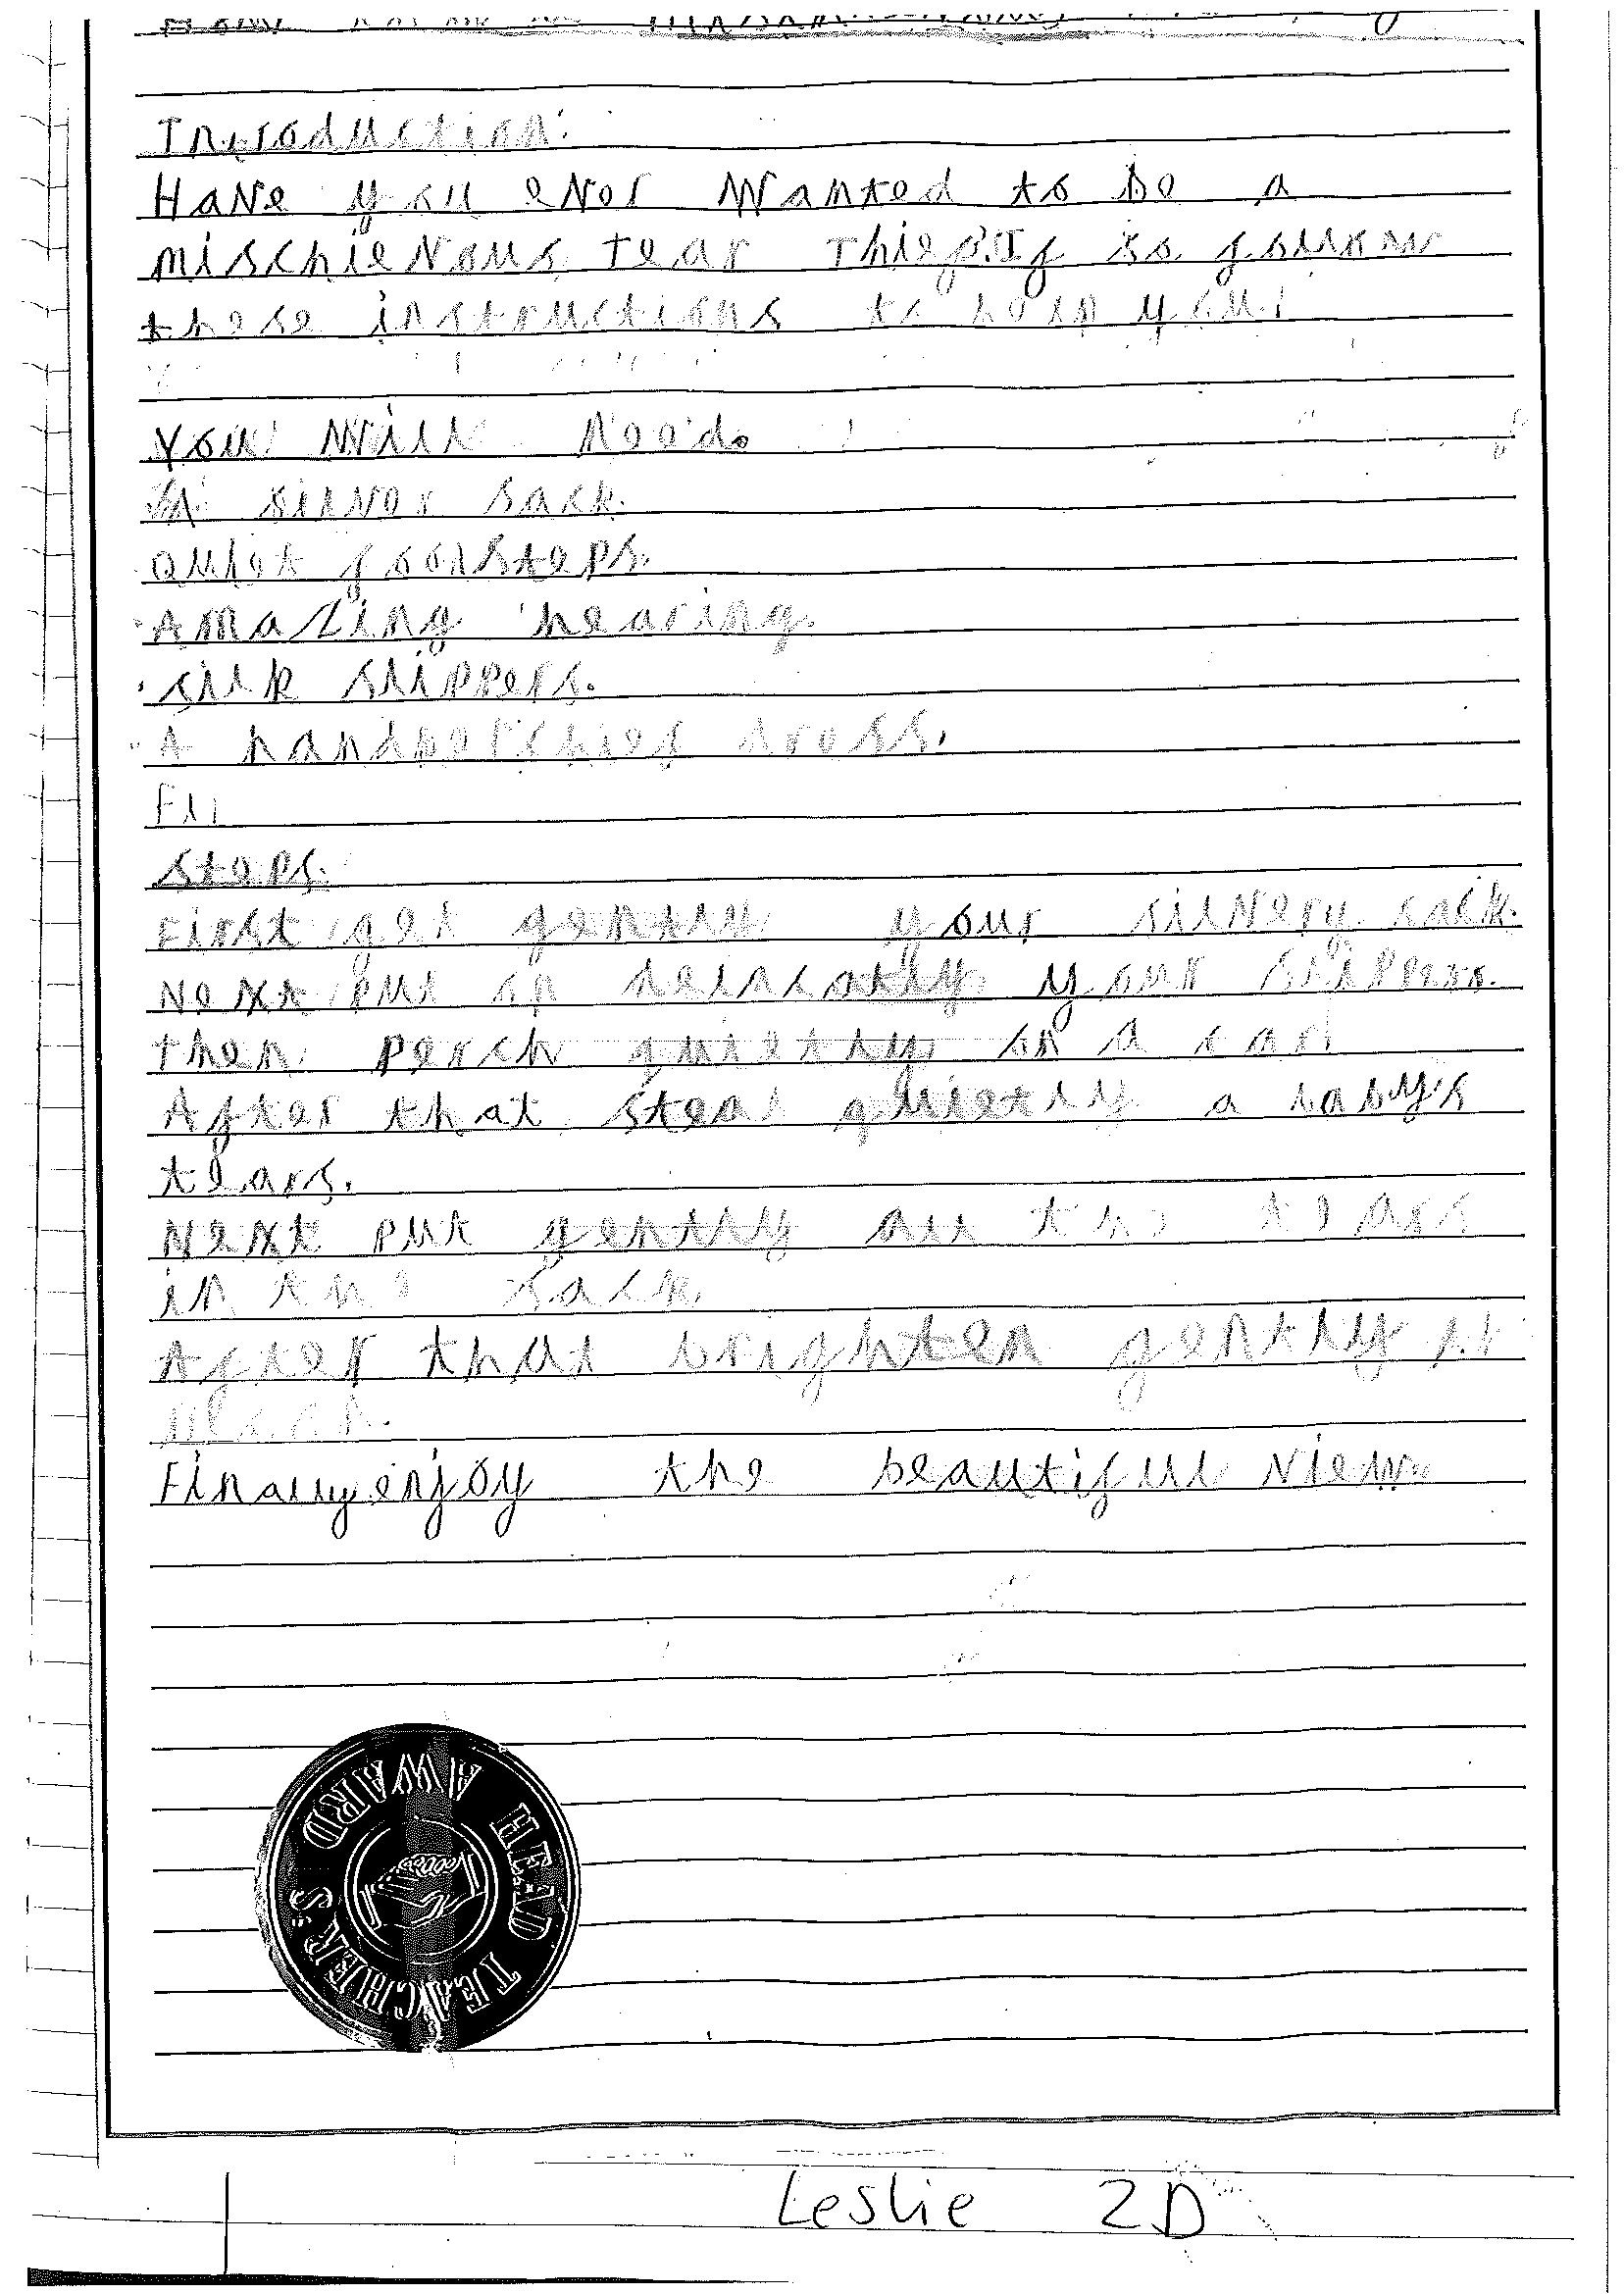 Introduction:
Have you ever wanted to be a
mischievous tear thief? If so follow
these instructions to help you!
You will need
A silver sack.
Quiet footsteps.
Amazing hearing.
silk slippers.
A handkerchief dress.
steps:
First get gently your silvery sack.
Next put on delicatly your slippers.
then perch quietly on a car
After that steal quietly a baby's
tears.
Next put gently all the tears
in the sack
After that brighten gently
Finally enjoy the beautiful view
HEAD TEACHER'S AWARD
Leslie 2D